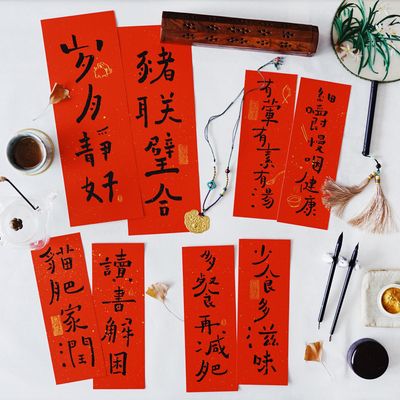 岁月靜好
豬联璧合
有葷有素有湯
細嚼慢咽健康
貓肥家閏
讀書解困
多餐再減肥
少食多滋味